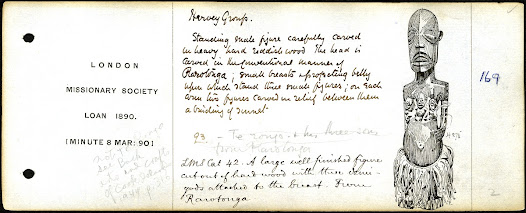 LONDON
MISSIONARY SOCIETY
LOAN 1890.
[MINUTE 8 MAR: 90]
Hervey Group.
Standing male figure carefully carved
in heavy hard reddish wood The head is
carved in the conventional manner of
Rarotonga; small breasts & projecting belly
upon which stand three male figures; on each
arm two figures carved in relief between them
a binding of sinnet
23. - Te rongo & his three sons
from Rarotonga
LMS Cat 42. A large well finished figure
cut out of hard wood with three demi-
gods attached to the breast. From
Rarotonga
169
2